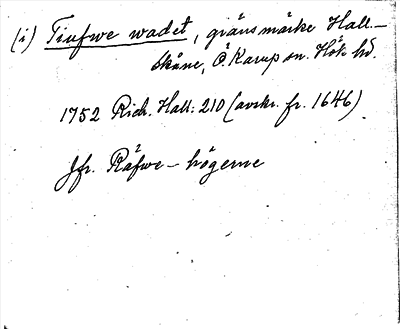 (i) Tiufwe wadet, gränsmärke Hall.-
Skåne, Ö Karup sn. Hök hd.
1752 Rich. Hall: 210 (avskr. fr. 1646)
Jfr. Räfwe-högerne